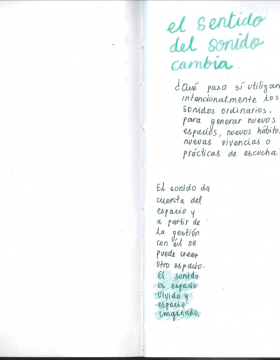 el sentido
del sonido
cambia.
¿Qué pasa si utilizan
intencionalmente los
sonidos ordinarios,
para generar nuevos
espacios, nuevos hábito
nuevas vivencias o
prácticas de escucha
El sonido da
cuenta del
espacio y
a partir de
la gestión
con él se
puede crear
otro espacio.
El sonido
es espacio
vivido y
espacio
imaginado.